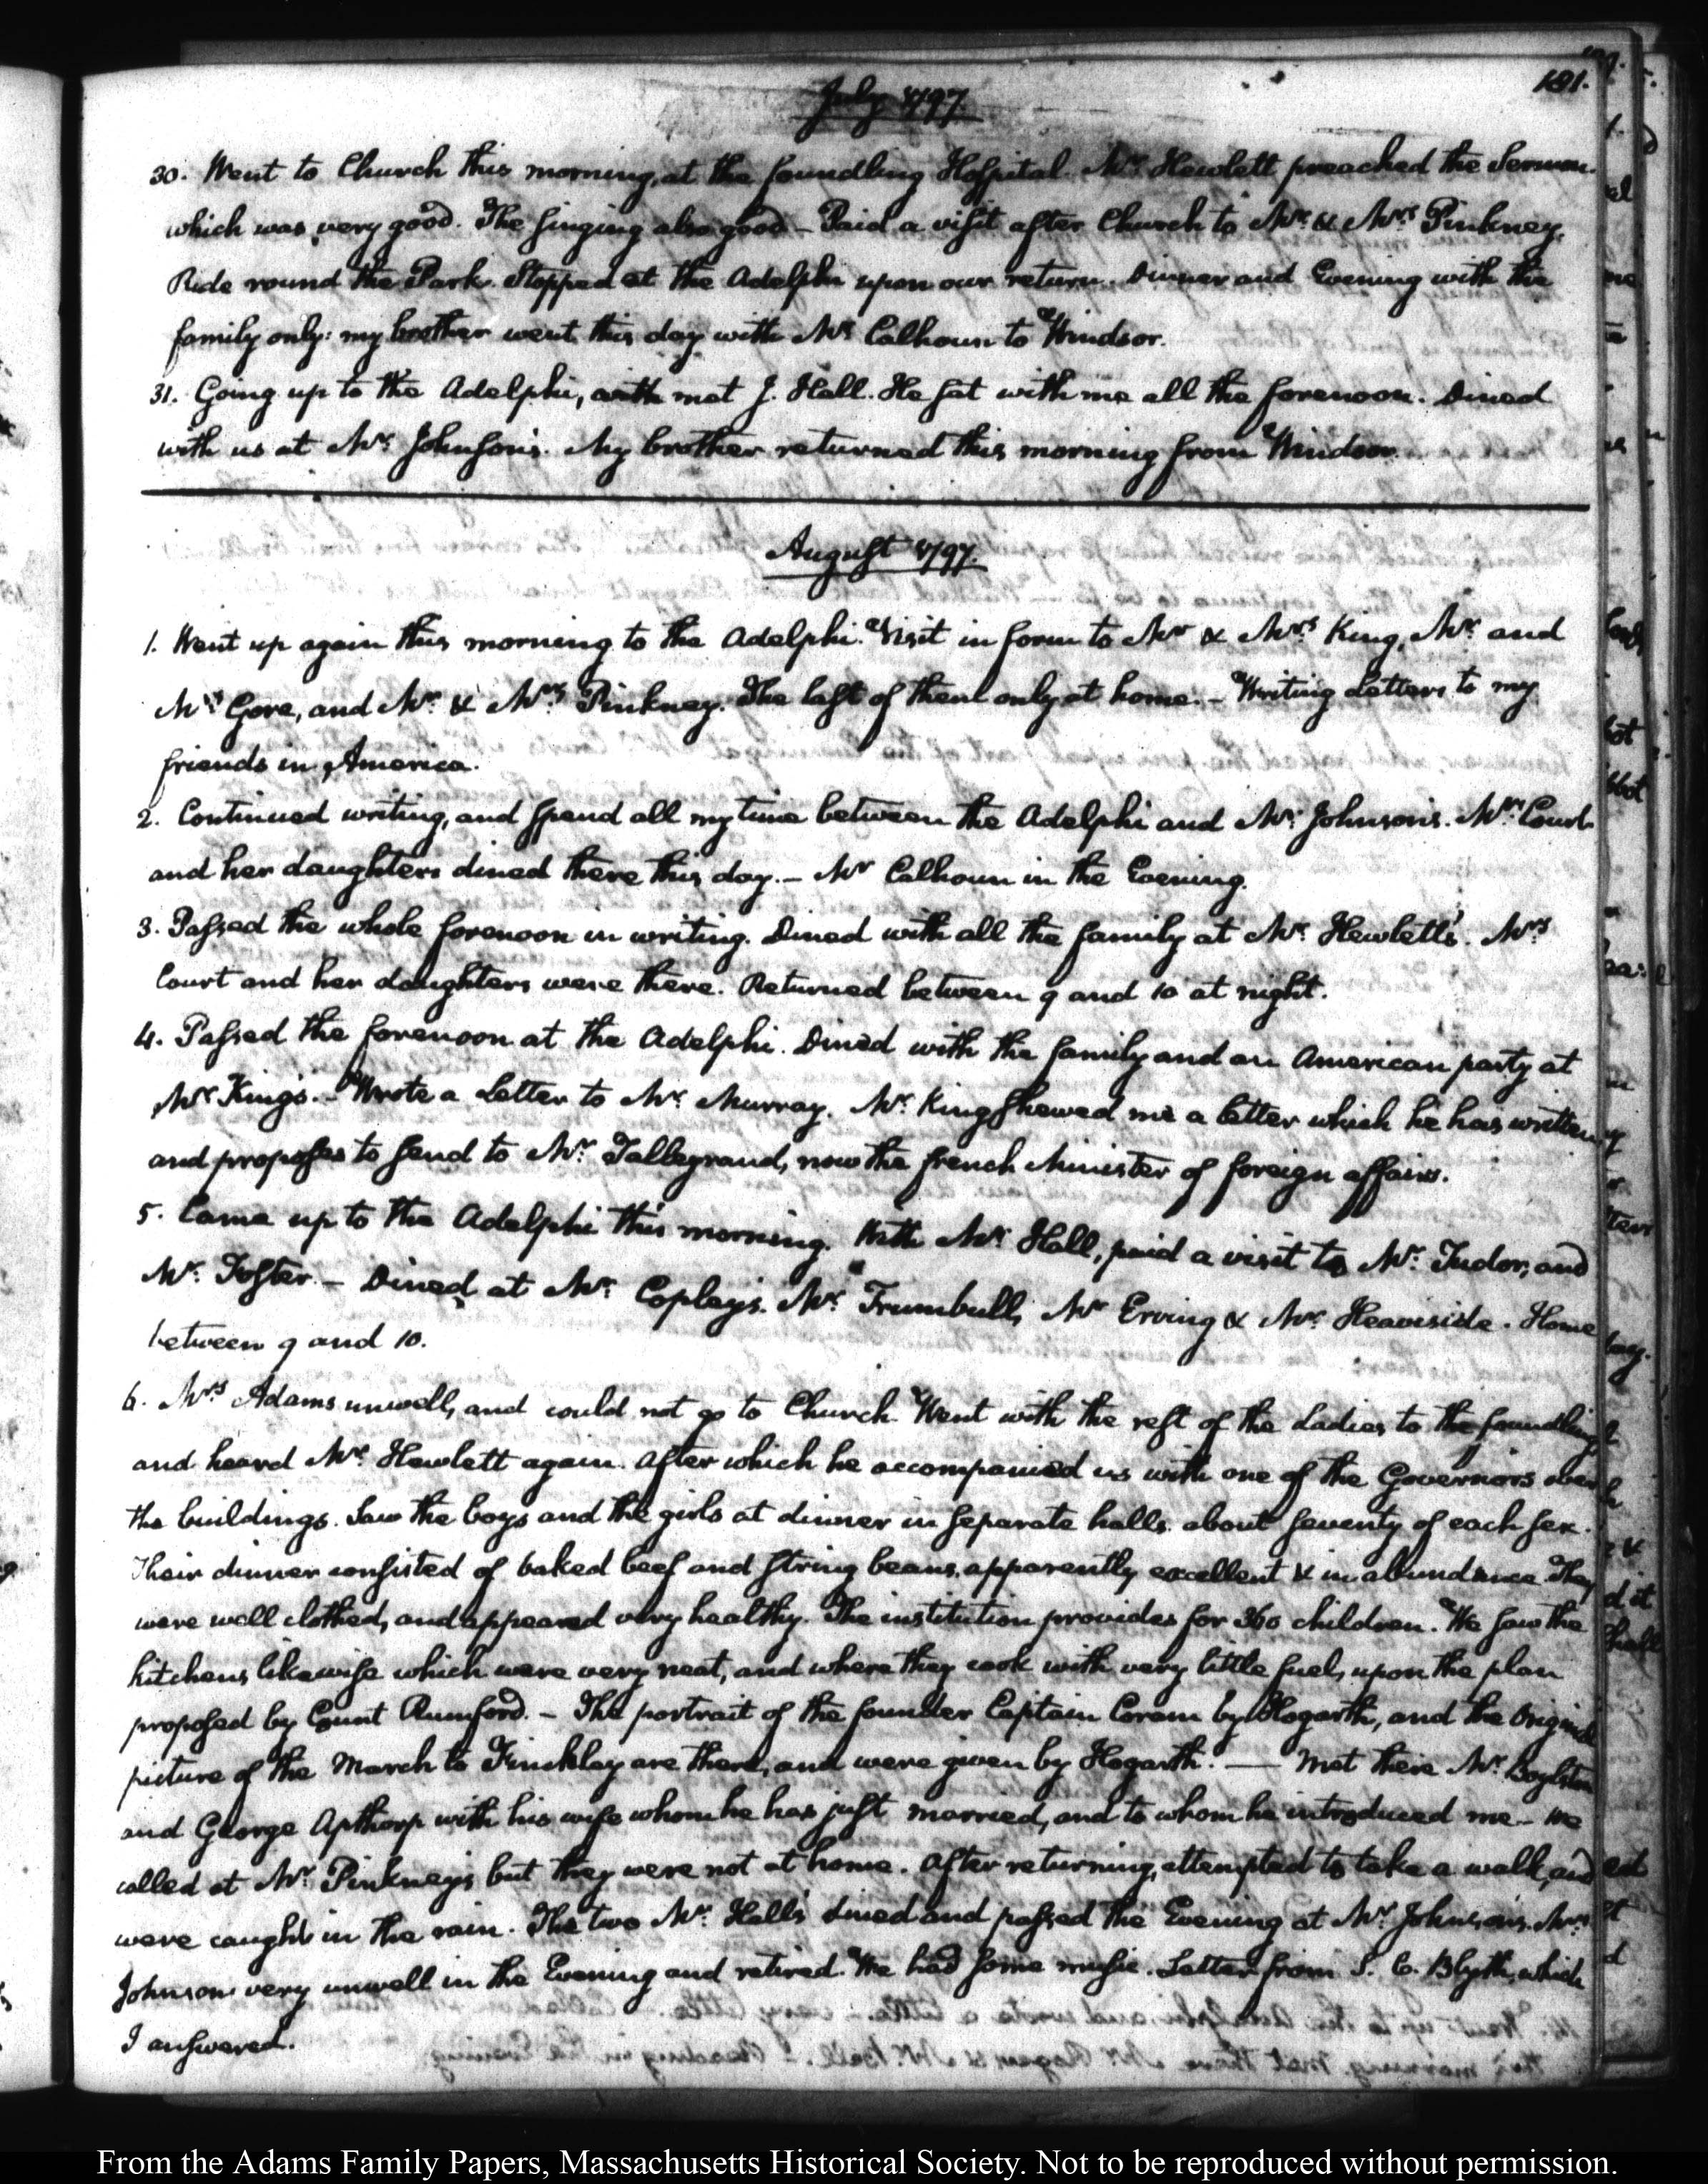 181.
July 1797.
30. Went to Church this morning, at the foundling Hospital. Mr. Hewlett preached the Sermon.
which was very good. The singing also good — Paid a visit after Church to Mr. & Mrs. Pinkney.
Ride round the Park. Stopped at the Adelphi upon our return. Dinner and Evening with the
family only: my brother went this day with Mr. Calhoun to Windsor.
31. Going up to the Adelphi, met J. Hall. He sat with me all the forenoon. Dined
with us at Mr. Johnson's. My brother returned this morning from Windsor.
August 1797.
1. Went up again this morning to the Adelphi. Visit in form to Mr. & Mrs. King, Mr. and
Mrs. Gore, and Mr. & Mrs. Pinkney. The last of them only at home. — Writing Letters to my
friends in America.
2. Continued writing, and spend all my time between the Adelphi and Mr. Johnson's. Mrs. Court
and her daughters dined there this day. — Mr. Calhoun in the Evening.
3. Passed the whole forenoon in writing. Dined with all the family at Mr. Hewlett's. Mrs.
Court and her daughters were there. Returned between 9 and 10 at night.
4. Passed the forenoon at the Adelphi. Dined with the family and an American party at
Mr. King's. — Wrote a Letter to Mr. Murray. Mr. King shewed me a letter which he has written
and proposes to send to Mr. Talleyrand, now the french Minister of foreign affairs.
5. Came up to the Adelphi this morning. With Mr. Hall, paid a visit to Mr. Tudor, and
Mr. Foster. — Dined at Mr. Copley's. Mr. Trumbull, Mr. Erving & Mr. Heaviside. Home
between 9 and 10.
6. Mrs. Adams unwell, and could not go to Church. Went with the rest of the Ladies to the foundling
and heard Mr. Hewlett again. After which he accompanied us with one of the Governors over
the buildings. Saw the boys and the girls at dinner in separate halls. about seventy of each sex.
Their dinner consisted of baked beef and string beans, apparently excellent & in abundance. They
were well clothed, and appeared very healthy. The institution provides for 360 children. We saw the
kitchens likewise which were very neat, and where they cook with very little fuel, upon the plan
proposed by Count Rumford. — The portrait of the founder Captain Coram by Hogarth, and the Original
picture of the March to Finchley are there, and were given by Hogarth. — Met there Mr. Boylston
and George Apthorp with his wife whom he has just married, and to whom he introduced me — We
called at Mr. Pinkney's but they were not at home. After returning, attempted to take a walk, and
were caught in the rain. The two Mr. Hall's dined and passed the Evening at Mr. Johnson's. Mrs.
Johnson very unwell in the Evening and retired. We had some music. Letter from S. C. Blyth, which
I answered.
From the Adams Family Papers, Massachusetts Historical Society. Not to be reproduced without permission.